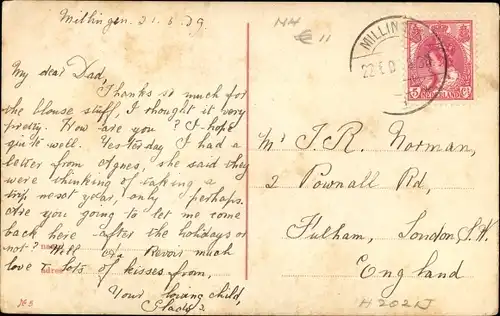 Millingen. 21.6.09
My dear Dad,
Thanks so much for
the blouse stuff, I thought it very
pretty. How are you? I hope
quite well. Yesterday I had a
letter from Agnes, she said they
were thinking of taking a
trip next year, only perhaps.
Are you going to let me come
back here after the holidays or
not? Well Au Revoir much
love & lots of kisses from,
Your loving child,
Gladys.
№ 3
€ 11
MILLIN
5
Mr J. R. Norman,
2 Pownall Rd,
Fulham, London, S.W.
England
H202N